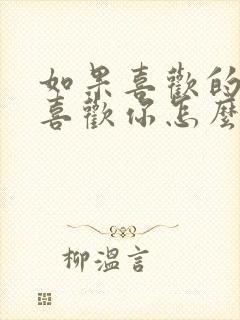 如果喜歡的
喜歡你怎麼
柳溫言